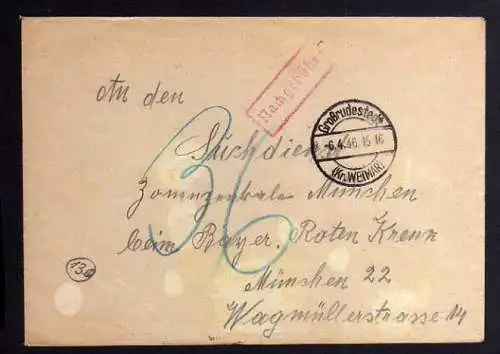 Nachgebühr
An den
Großrudestedt
-6.4.46.15-16
(Kr. WEIMAR)
36
Suchdienst
Zonenzentrale München
beim Bayer. Roten Kreuz
(13b)
München 22
Wagmüllerstrasse 14